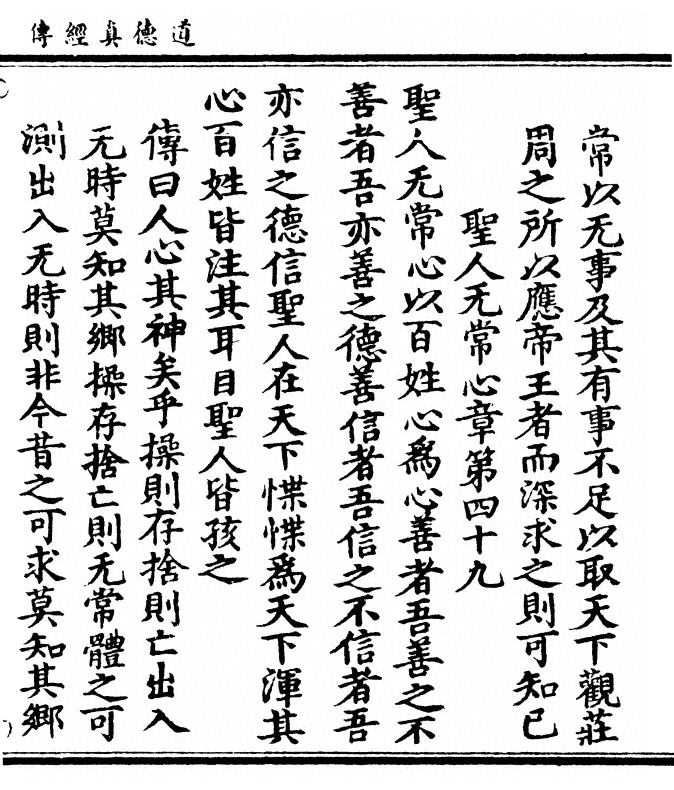 道德真經傳
常以无事及其有事不足以取天下觀莊
周之所以應帝王者而深求之則可知已
聖人无常心章第四十九
聖人无常心以百姓心爲心善者吾善之不
善者吾亦善之德善信者吾信之不信者吾
亦信之德信聖人在天下惵惵爲天下渾其
心百姓皆注其耳目聖人皆孩之
傳曰人心其神矣乎操則存捨則亡出入
无時莫知其鄉操存捨亡則无常體之可
測出入无時則非今昔之可求莫知其鄉